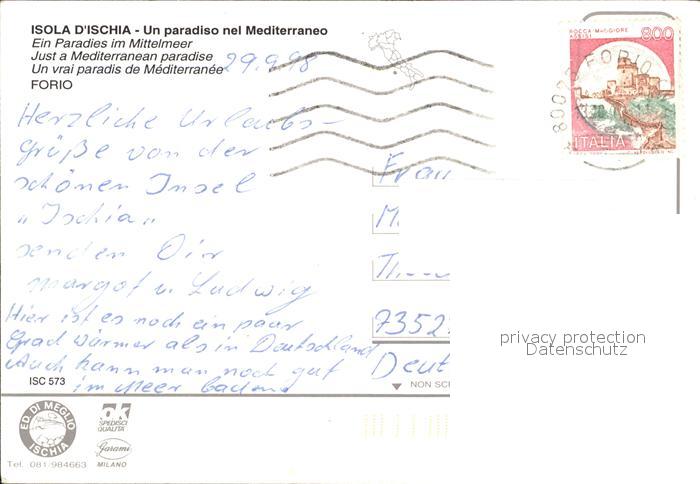 ISOLA D'ISCHIA - Un paradiso nel Mediterraneo
Ein Paradies im Mittelmeer
Just a Mediterranean paradise
Un vrai paradis de Méditerranée
FORIO
29.9.98
Herzliche Urlaubs-
grüße von der
schönen Insel
„Ischia"
senden Dir
Margot u. Ludwig
Hier ist es noch ein paar
Grad wärmer als in Deutschland
Auch kann man noch gut
im Meer baden
ROCCA MAGGIORE
ASSISI
800
ITALIA
80075 FORIO
Frau
M.
7352
Deut
privacy protection
Datenschutz
ISC 573
NON SC
ED. DI MEGLIO
ISCHIA
ok
SPEDISCI
QUALITA'
Garami
MILANO
Tel. 081/984663